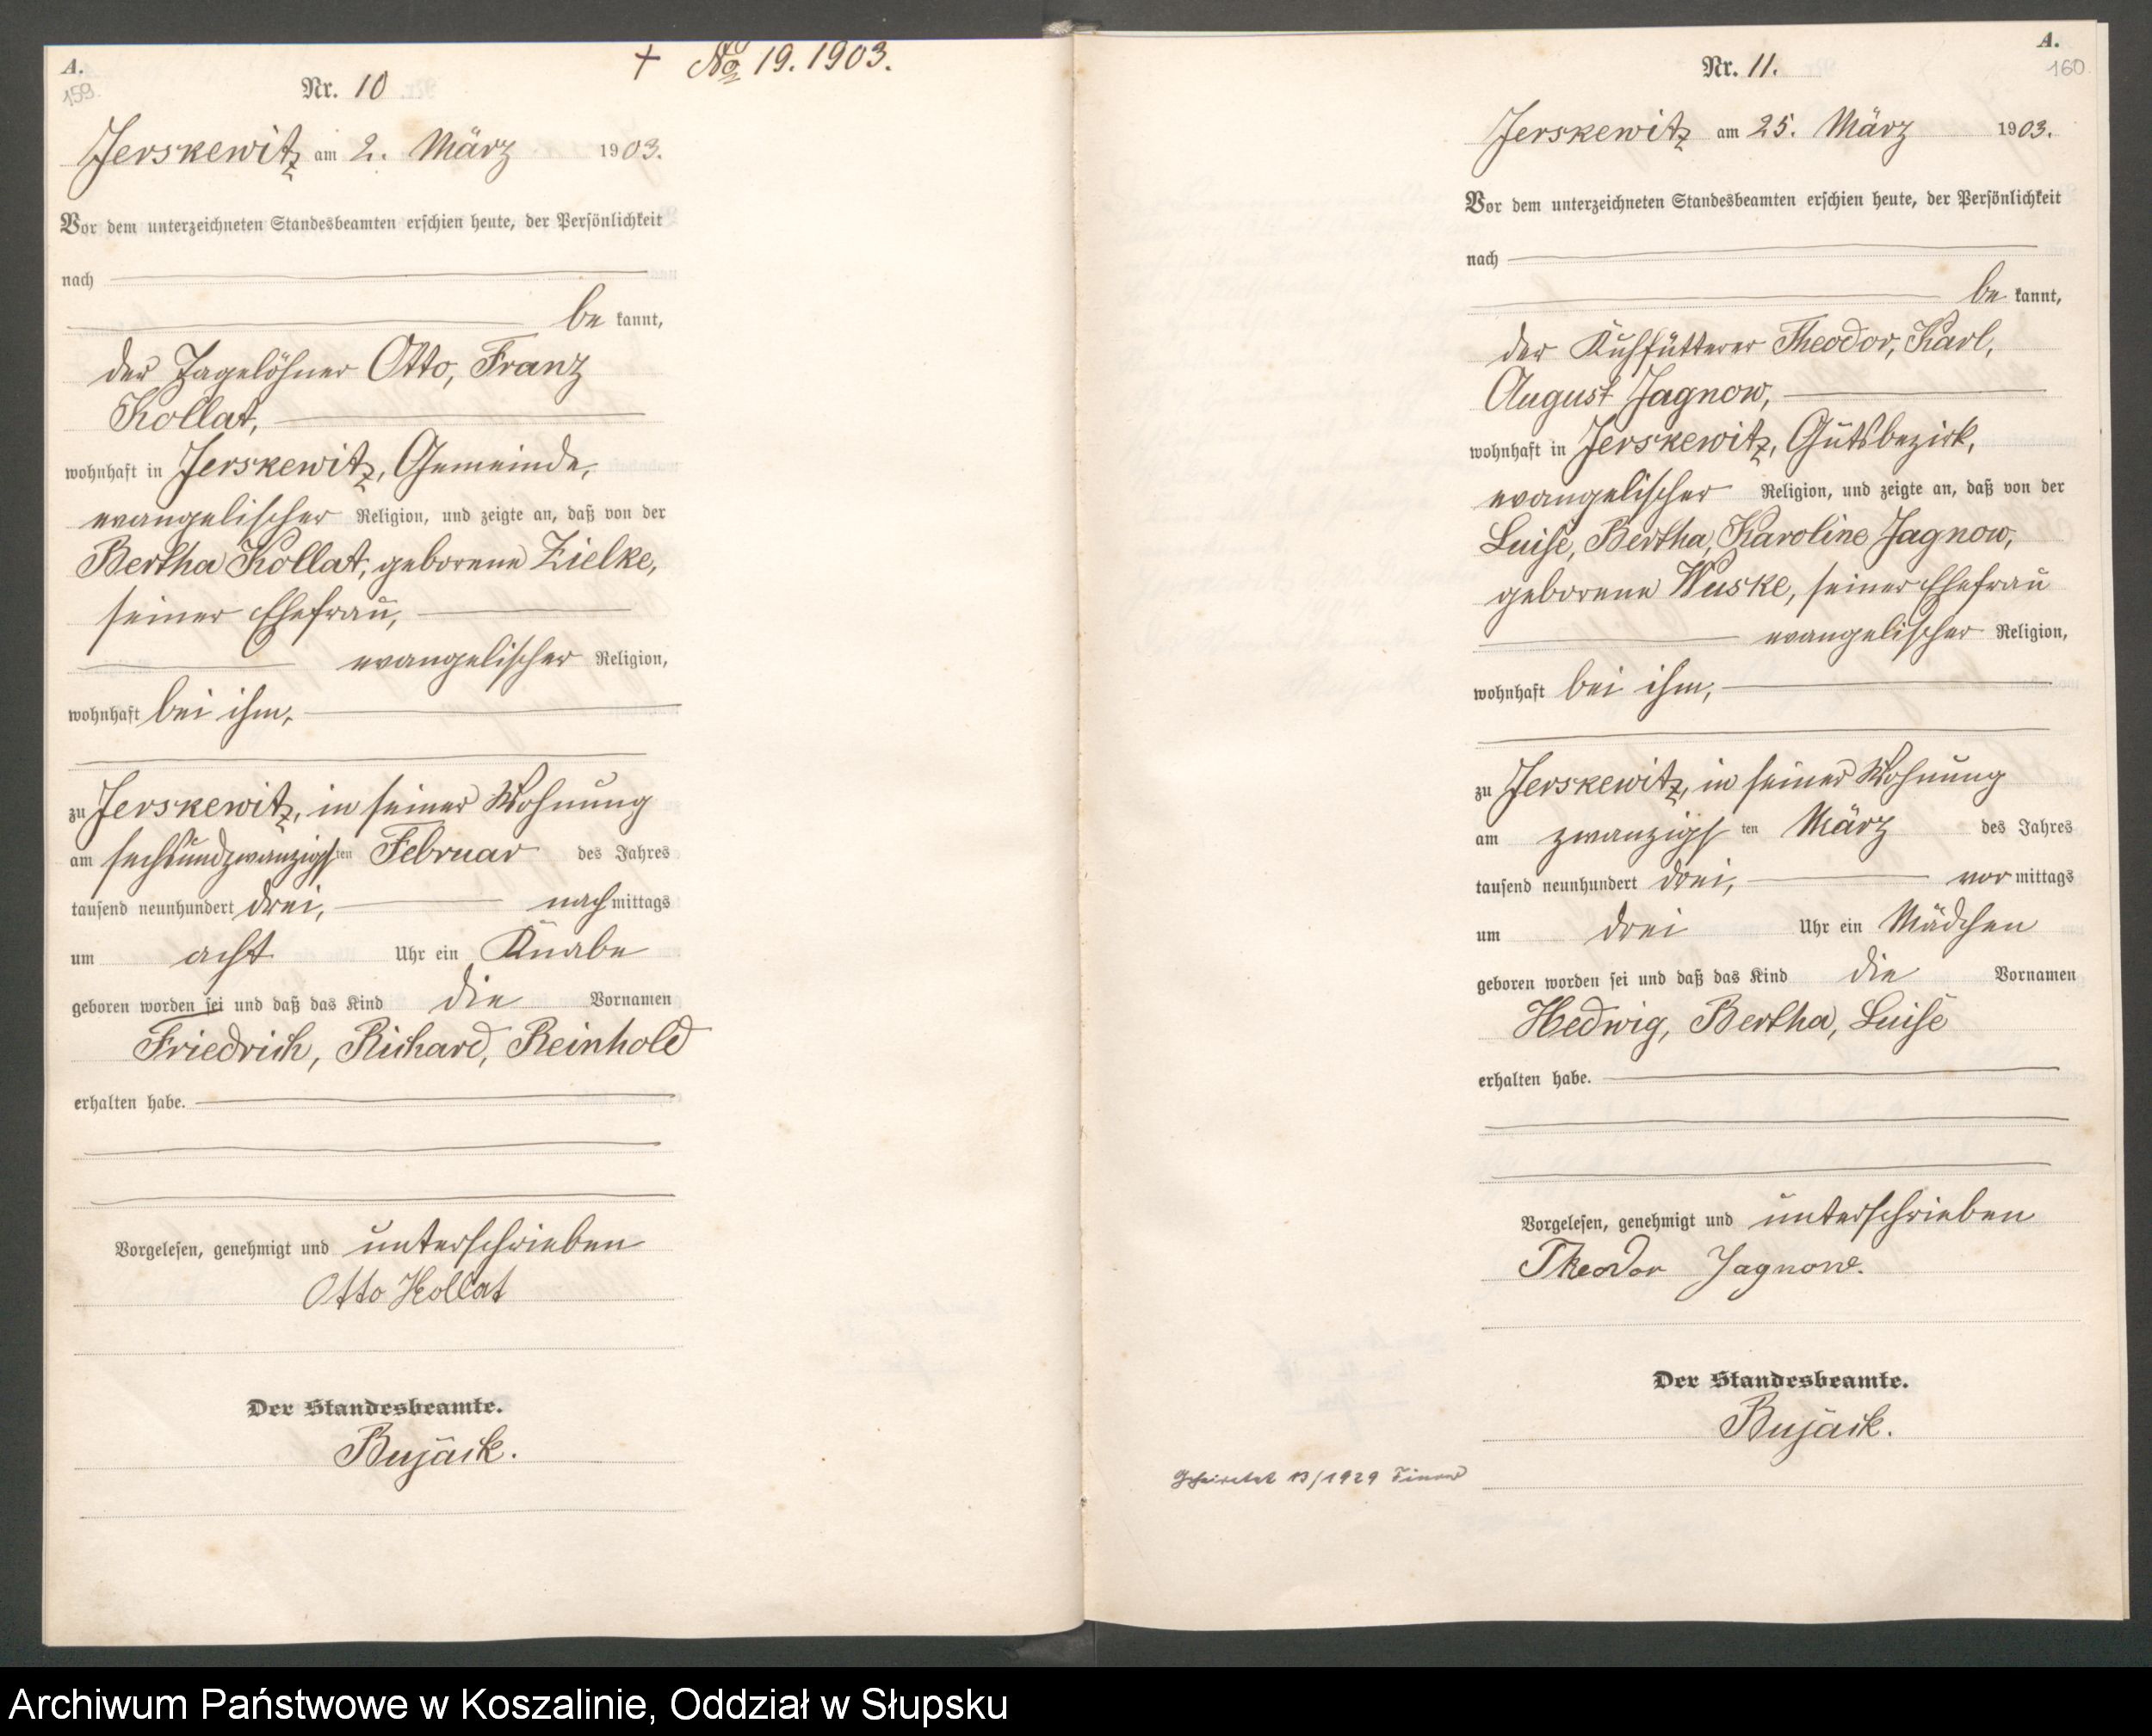 A.
159.
Nr. 10
+ No 19. 1903.
Jerskewitz am 2. März 1903.
Vor dem unterzeichneten Standesbeamten erschien heute, der Persönlichkeit
nach
be kannt,
der Tagelöhner Otto, Franz
Kollat,
wohnhaft in Jerskewitz, Gemeinde,
evangelischer Religion, und zeigte an, daß von der
Bertha Kollat, geborene Zielke,
seiner Ehefrau,
evangelischer Religion,
wohnhaft bei ihm,
zu Jerskewitz, in seiner Wohnung
am sechsundzwanzigsten Februar des Jahres
tausend neunhundert drei, nachmittags
um acht Uhr ein Knabe
geboren worden sei und daß das Kind die Vornamen
Friedrich, Richard, Reinhold
erhalten habe.
Vorgelesen, genehmigt und unterschrieben
Otto Kollat
Der Standesbeamte.
Bujack.
A.
160
Nr. 11.
Jerskewitz am 25. März 1903.
Vor dem unterzeichneten Standesbeamten erschien heute, der Persönlichkeit
nach
be kannt,
der Kuhfütterer Theodor, Karl,
August Jagnow,
wohnhaft in Jerskewitz, Gutsbezirk,
evangelischer Religion, und zeigte an, daß von der
Luise, Bertha, Karoline Jagnow,
geborene Wuske, seiner Ehefrau
evangelischer Religion,
wohnhaft bei ihm,
zu Jerskewitz, in seiner Wohnung
am zwanzigsten März des Jahres
tausend neunhundert drei, vormittags
um drei Uhr ein Mädchen
geboren worden sei und daß das Kind die Vornamen
Hedwig, Bertha, Luise
erhalten habe.
Vorgelesen, genehmigt und unterschrieben
Theodor Jagnow.
Der Standesbeamte.
Bujack.
Geheiratet 13/1929 Finow
Archiwum Państwowe w Koszalinie, Oddział w Słupsku